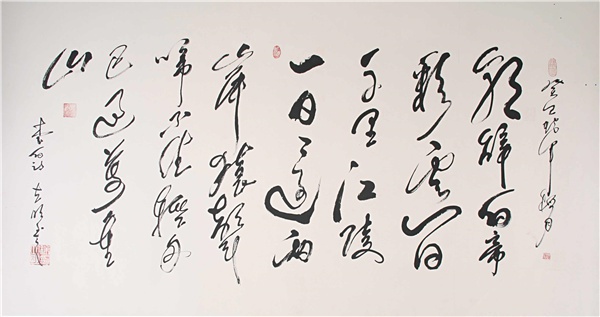 癸巳
朝辭白帝
彩雲間
千里江陵
一日還兩
岸猿聲
啼不住輕舟
已過萬重
山
李白詩